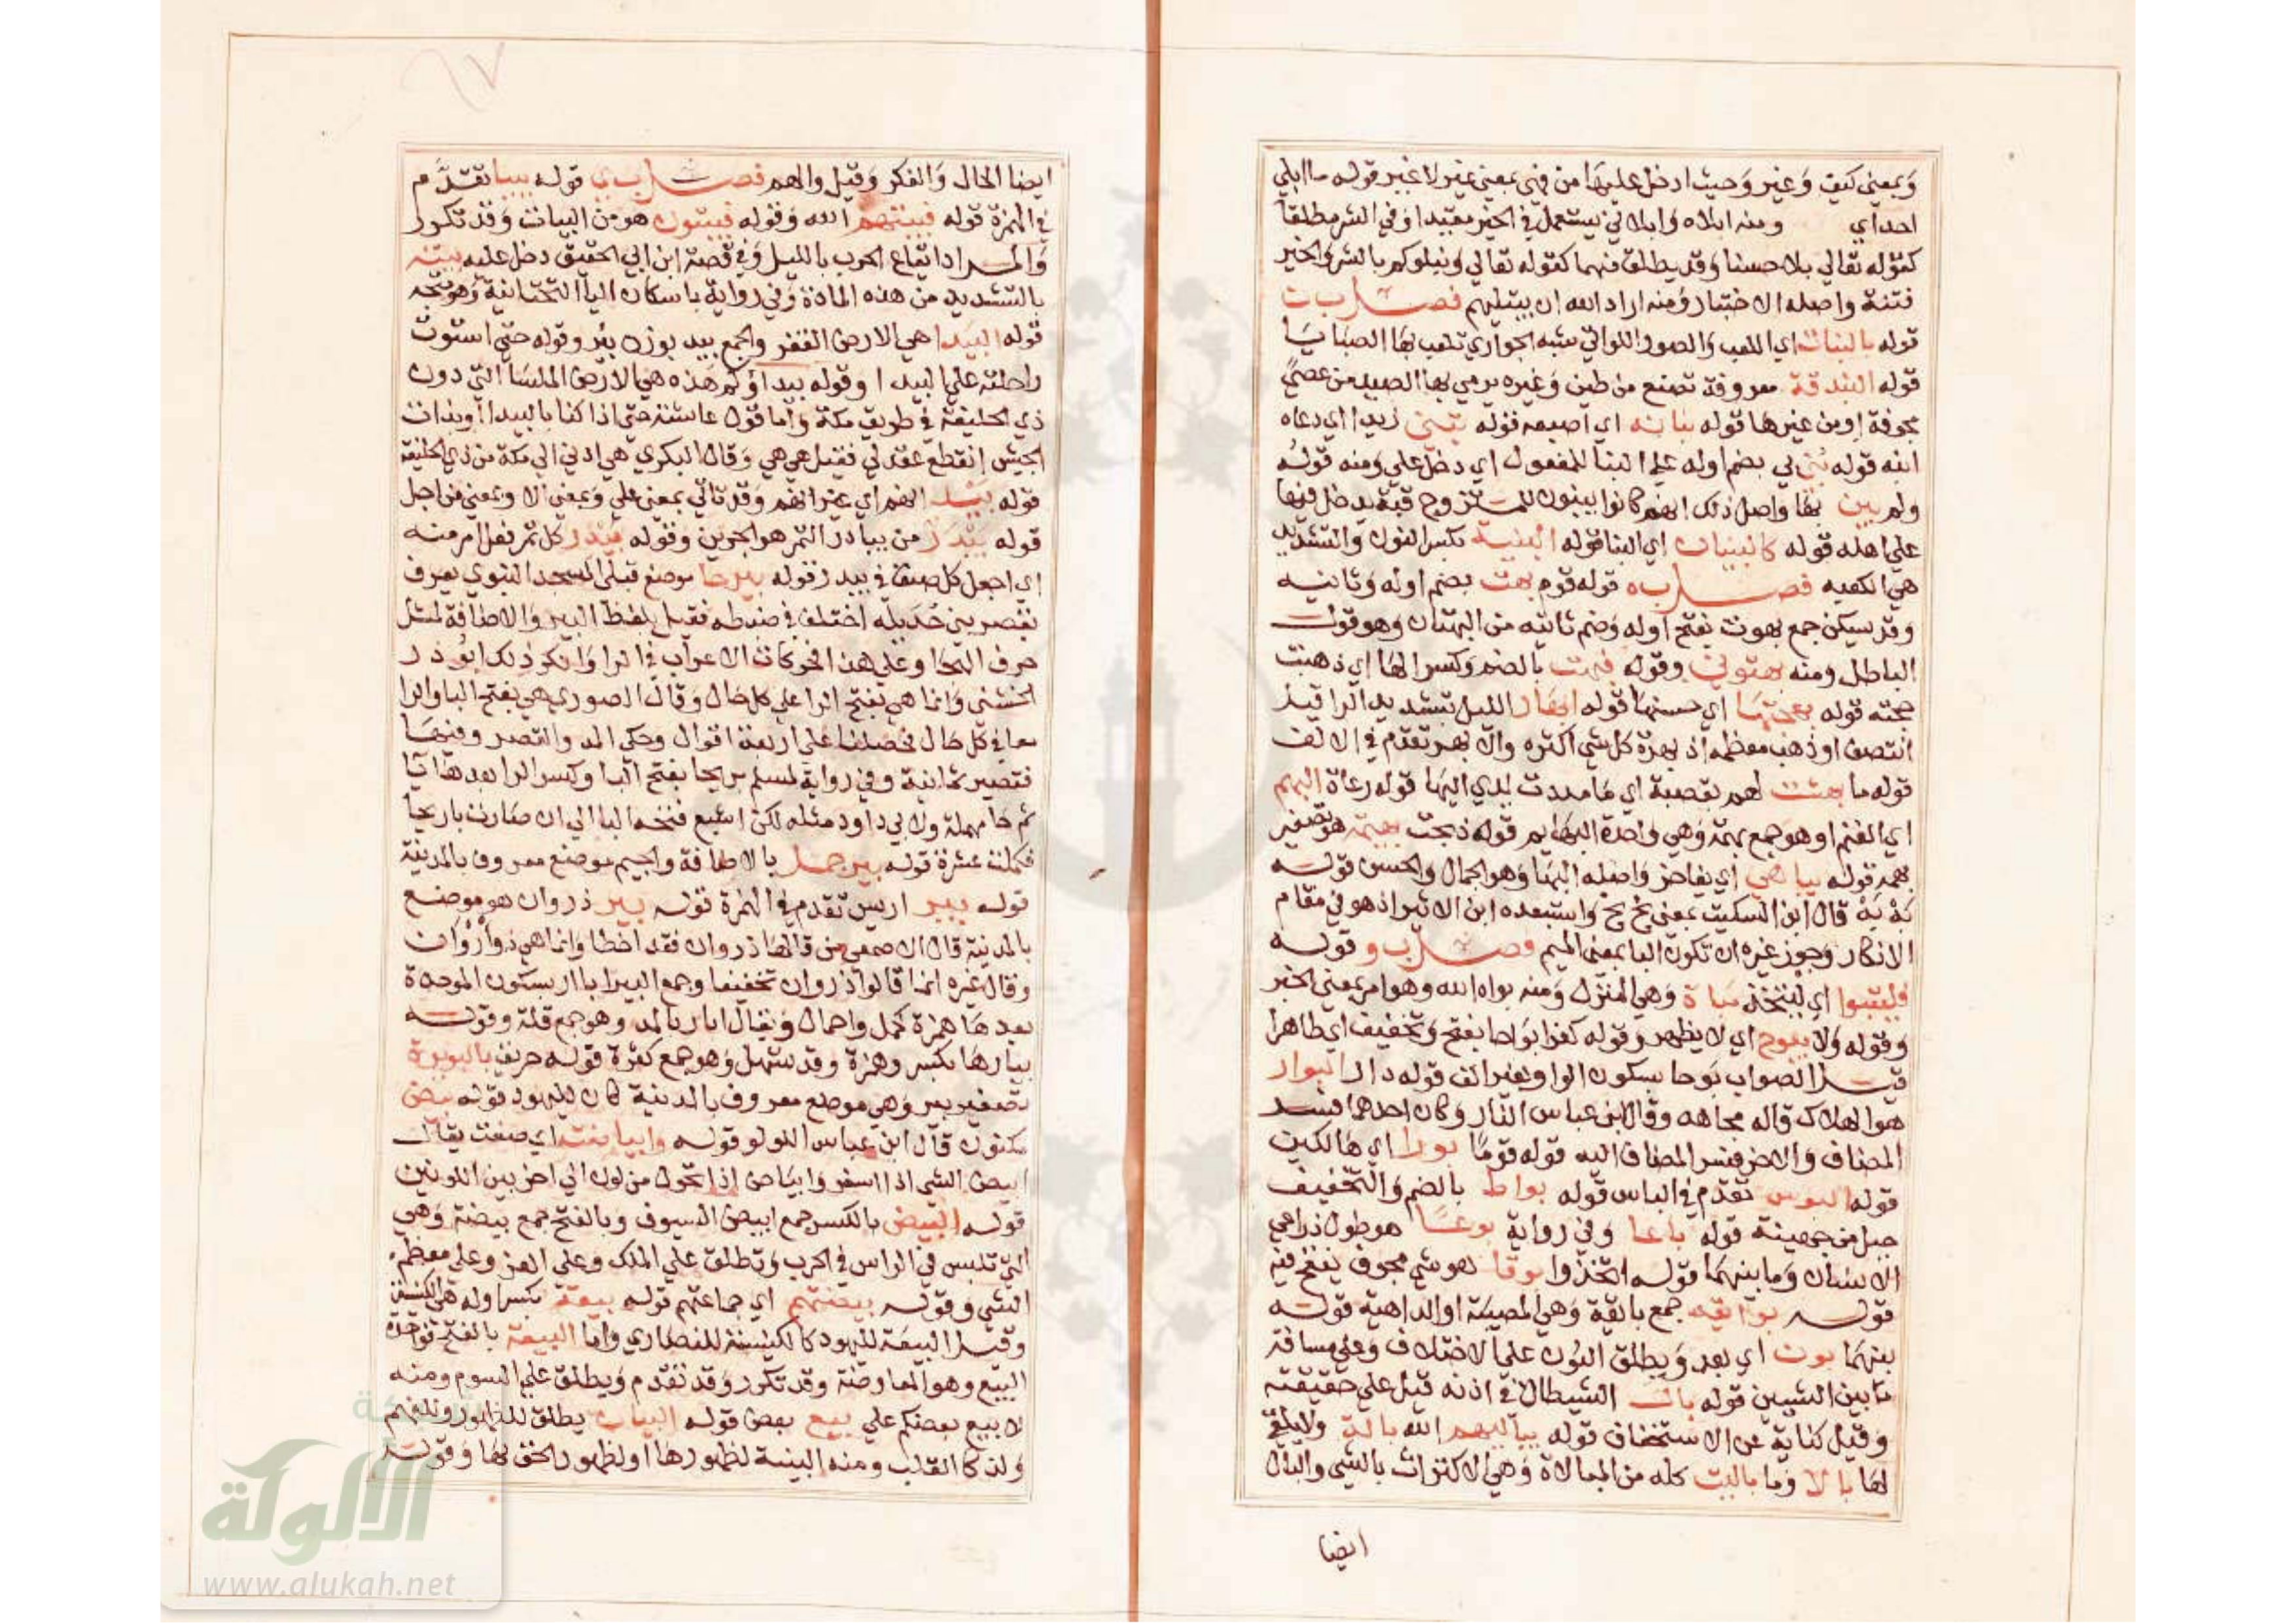 وبمعني كيف وغير وحيث ادخل عليها من فهي بمعني غير لا غير قوله ما ابلي
احد اي ومنه ابلاه وابلاني يستعمل في الخير مقيدا وفي الشر مطلقا
كقوله تعالي بلاء حسنا وقد يطلق فيهما كقوله تعالي ونبلوكم بالشر والخير
فتنة واصله الاختبار ومنه اراد الله ان يبتليهم فصل ب ن
قوله بالبنات اي اللعب والصور اللواتي شبه الجواري تلعب بها الصبايا
قوله البندقة معروفة تصنع من طين وغيره يرمي بها الصيد من عصي
مجوفة او من غيرها قوله بنانه اي اصبعه قوله تبني زيدا اي دعاه
ابنه قوله بُني بي بضم اوله علي البنا للمفعول اي دخل علي ومنه قوله
ولم يبن بها واصل ذلك انهم كانوا يبنون للمتزوج قبة يدخل فيها
علي اهله قوله كالبنيان اي البنا قوله البنية بكسر النون والتشديد
هي الكعبه فصل ب ه قوله قوم بهت بضم اوله وثانيه
وقد يسكن جمع بهوت بفتح اوله وضم ثانيه من البهتان وهو قول
الباطل ومنه بهتوني وقوله فبهت بالضم وكسر الها اي ذهبت
حجته قوله بهجتها اي حسنها قوله ابهار الليل بتشديد الرا قيل
انتصف او ذهب معظمه اذ بهرة كل شي اكثره والابهر تقدم في الالف
قوله ما بهشت لهم بقصبة اي ما مددت يدي اليها قوله رعاة البهم
اي الغنم او هو جمع بهمة وهي واحدة البهايم قوله ذبحت بهيمة هو تصغير
بهمه قوله يباهي اي يفاخر واصله البها وهو الجمال والحسن قوله
بَهْ بَهْ قال ابن السكيت بمعني بخ بخ واستبعده ابن الاثير اذ هو في مقام
الانكار وجوز غيره ان تكون البا بمعني الميم فصل ب و قوله
فليتبوا اي ليتخذ مباة وهي المنزل ومنه بواه الله وهو امر بمعني الخبر
وقوله ولا يبوح اي لا يظهر وقوله كفرا بواحا بفتح وتخفيف اي ظاهرا
قيل الصواب بوحا بسكون الواو بغير الف قوله دار البوار
هو الهلاك قاله مجاهد وقال ابن عباس النار وكان احدهما فسر
المضاف والاخر فسر المضاف اليه قوله قوما بورا اي هالكين
قوله البوس تقدم في الباس قوله بواط بالضم والتخفيف
جبل من جهينة قوله باعا وفي رواية بوعا هو طول ذراعي
الانسان وما بينهما قوله اتخذوا بوقا هو شي مجوف ينفخ فيه
قوله بوائقه جمع بائقة وهي المصيبة او الداهية قوله
بينهما بون اي بعد ويطلق البون علي الاختلاف وعلي مسافة
ما بين الشيين قوله بال الشيطان في اذنه قيل علي حقيقته
وقيل كناية عن الاستخفاف قوله يباليهم الله بالة ولا يلقي
لها بالا وما باليت كله من المبالاة وهي الاكتراث بالشي والبال
ايضا
ايضا الحال والفكر وقيل والهم فصل ب ي قوله بيبا تقدم
في الهمزة قوله فبيتهم الله وقوله فيبيتون هو من البيات وقد تكرر
والمراد ايقاع الحرب بالليل وفي قصة ابن ابي الحقيق دخل عليه بيته
بالتشديد من هذه المادة وفي رواية باسكان اليا التحتانية وهو متجه
قوله البيدا هي الارض القفر والجمع بيد بوزن بئر وقوله حتي استوت
راحلته علي البيدا وقوله بيداؤكم هذه هي الارض الملسا التي دون
ذي الحليفة في طريق مكة واما قول عائشة حتي اذا كنا بالبيدا او بذات
الجيش انقطع عقد لي فقيل هي هي وقال البكري هي ادني الي مكة من ذي الحليفة
قوله بيد انهم اي غير انهم وقد تاتي بمعني علي وبمعني الا وبمعني من اجل
قوله بيدر من بيادر التمر هو الجرين وقوله بيدر كل تمر فعل امر منه
اي اجعل كل صنف في بيدر قوله بيرحا موضع قبلي المسجد النبوي يعرف
بقصر بني حديلة اختلف في ضبطه فقيل بلفظ البير والاضافة لمثل
حرف الهجا وعلي هذا فحركات الاعراب في الرا وانكر ذلك ابو ذر
الخشني وانما هي بفتح الرا علي كل حال وقال الصوري هي بفتح البا والرا
معا في كل حال فحصلنا علي اربعة اقوال وحكي المد والقصر وفيها
فتصير ثمانية وفي رواية لمسلم بريحا بفتح البا وكسر الرا بعدها يا
ثم حا مهملة ولابي داود مثله لكن اشبع فتحة البا الي ان صارت باريحا
فكملت عشرة قوله بير جمل بالاضافة والجيم موضع معروف بالمدينة
قوله بير اريس تقدم في الهمزة قوله بير ذروان هو موضع
بالمدينة قال الاصمعي من قالها ذروان فقد اخطا وانما هي ذو أروان
وقال غيره انما قالوا ذروان تخفيفا وجمع البير ابار بسكون الموحدة
بعدها همزة كحمل واحمال ويقال ابار بالمد وهو جمع قلة وقوله
بيارها بكسر وهمزة وقد تسهل وهو جمع كثرة قوله حريق بالبويرة
تصغير بير وهي موضع معروف بالمدينة كان لليهود قوله بيض
مكنون قال ابن عباس اللولو قوله وابياضت اي صفت يقال
ابيض الشي اذا اسفر وابياض اذا تحول من لون الي اخر بين اللونين
قوله البيض بالكسر جمع ابيض السيوف وبالفتح جمع بيضة وهي
التي تلبس في الراس في الحرب وتطلق علي الملك وعلي العز وعلي معظم
الشي وقوله بيضتهم اي جماعتهم قوله بيعة بكسر اوله هي الكنيسة
وقيل البيعة لليهود كالكنيسة للنصاري واما البيعة بالفتح فواحدة
البيع وهو المعاوضة وقد تكرر وقد تقدم ويطلق علي السوم ومنه
لا يبيع بعضكم علي بيع بعض قوله البيان يطلق للظهور وللفهم
ولذكا القلب ومنه البينة لظهورها او لظهور الحق بها وقوله
شبكة
الألوكة
www.alukah.net